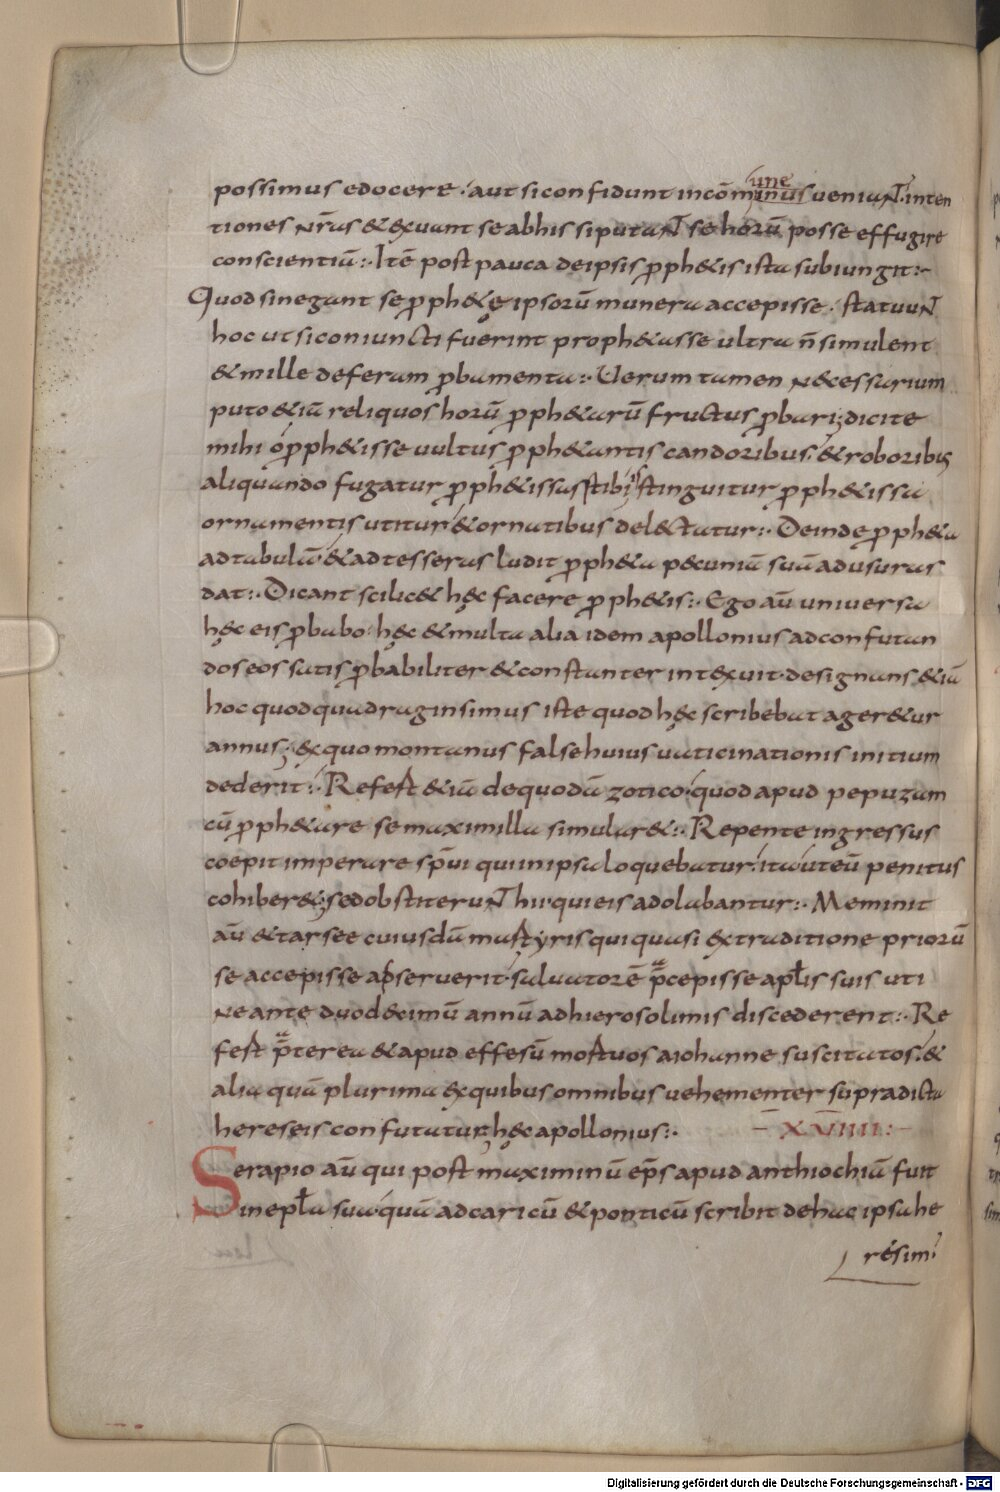 possimus edocere. aut si confidunt in cōminus ueniaNT. inten
une
tiones nr̄as & exuant se ab his si putaNT se horū posse effugire
conscientiā:. Itē post pauca de ipsis pph&is ista subiungit:-
Quod si negant se pph&ę ipsorū munera accepisse. statuuNT
hoc ut si coniuncti fuerint proph&asse ultra ñ simulent
& mille deferam pbamenta:. Uerum tamen necessarium
puto &iā reliquos horū pph&arū fructus pbari; dicite
mihi o pph&isse uultus pph&antis candoribus. & roboribus
aliquando fugatur pph&issa stibi stinguitur pph&issa
ornamentis utitur & ornatibus delectatur:. Deinde pph&a
ad tabulā & ad tesseras ludit pph&a pecuniā suā ad usuras
dat:. Dicant scilic& hęc facere pph&is:. Ego aū uniuersa
hęc eis pbabo. hęc & multa alia idem apollonius ad confutan
dos eos satis pbabiliter & constanter int&xuit. designans &iā
hoc quod quadraginsimus iste quod hęc scribebat ager&ur
annus; ex quo montanus false huius uaticinationis initium
dederit:. Refert &iā de quodā zotico. quod apud pepuzam
cū pph&are se maximilla simular&:. Repente ingressus
coepit imperare sp̄ui qui in ipsa loquebatur. ita ut eū penitus
cohiber&; sed obstiteruNT hii qui eis adolabantur:. Meminit
aū & tarsee cuiusdā martyris qui quasi ex traditione priorū
se accepisse adseruerit. saluatorē p̄cepisse apłis suis uti
ne ante duodecimū annū ad hierosolimis discederent:. Re
fert p̄terea & apud effesū mortuos a iohanne suscitatos. &
alia quā plurima ex quibus omnibus uehementer supradicta
hereseis confutatur; hęc apollonius:. – XVIIII:–
Serapio aū qui post maximinū ep̄s apud anthiochiā fuit
in epła sua quā ad caricū & ponticū scribit de hac ipsa he
resim